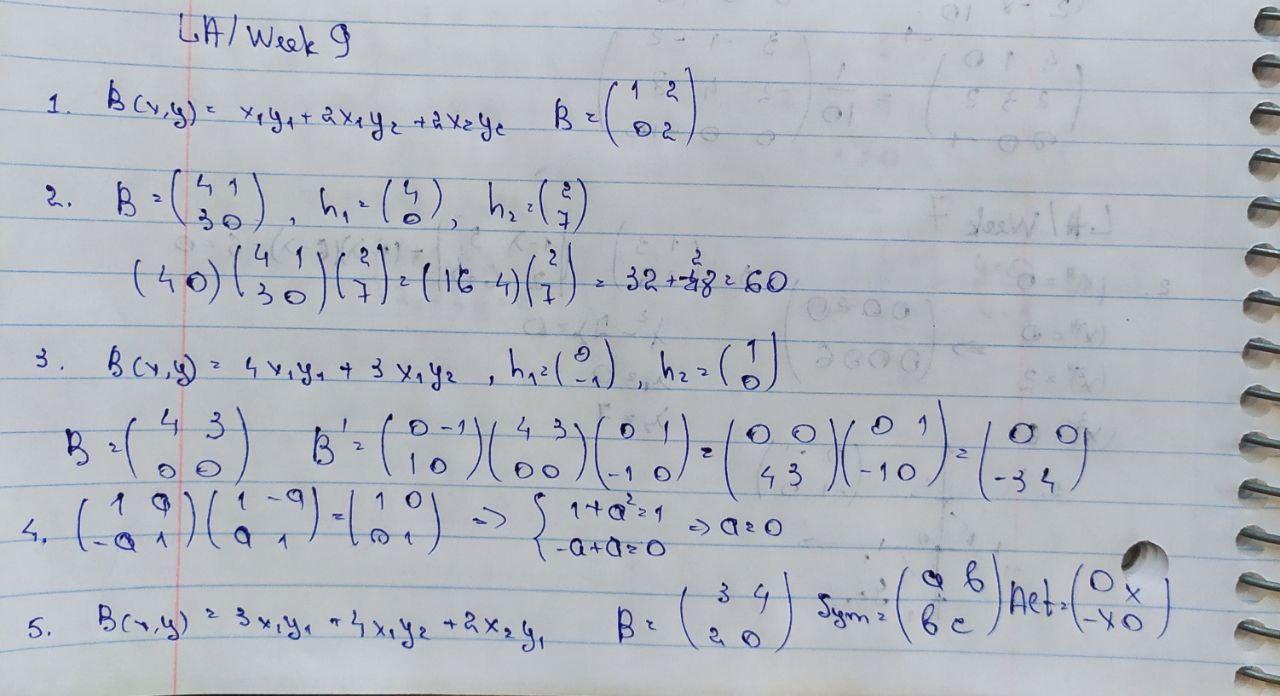 LA/Week 9
1. B(x,y) = x₁y₁ + 2x₁y₂ + 2x₂y₂ B = (1 2 / 0 2)
2. B = (4 1 / 3 0), h₁ = (4 / 0), h₂ = (2 / 7)
(4 0)(4 1 / 3 0)(2 / 7) = (16 4)(2 / 7) = 32 + 28 = 60
3. B(x,y) = 4x₁y₁ + 3x₁y₂, h₁ = (0 / -1), h₂ = (1 / 0)
B = (4 3 / 0 0) B' = (0 -1 / 1 0)(4 3 / 0 0)(0 1 / -1 0) = (0 0 / 4 3)(0 1 / -1 0) = (0 0 / -3 4)
4. (1 a / -a 1)(1 -a / a 1) = (1 0 / 0 1) => { 1+a²=1 / -a+a=0 => a=0
5. B(x,y) = 3x₁y₁ + 4x₁y₂ + 2x₂y₁ B = (3 4 / 2 0) Sym = (a b / b c) Ant = (0 x / -x 0)